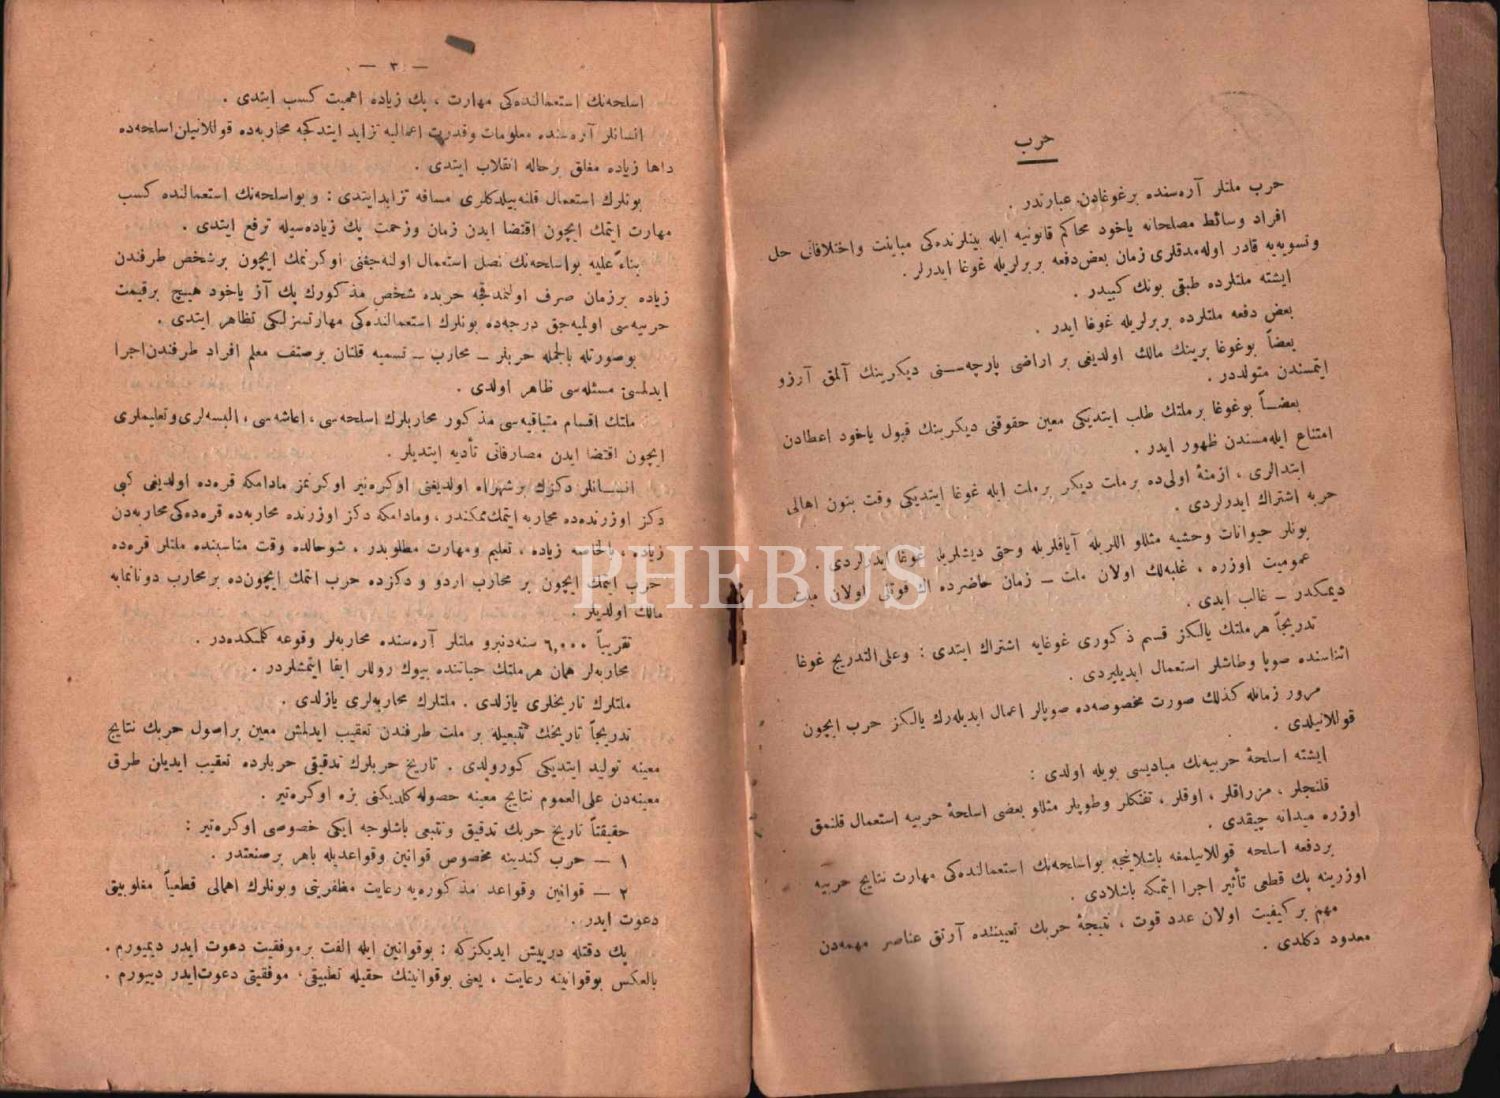 حرب
حرب ملتلر آره‌سنده برغوغادن عبارتدر .
افراد وسائط مصلحانه یاخود محاکم قانونیه ایله بینلرنده‌کی مباینت واختلافاتی حل
وتسویه‌یه قادر اوله‌مدقلری زمان بعض‌دفعه بربرلریله غوغا ایدرلر .
ایشته ملتلرده طبقی بونك کبیدر .
بعض دفعه ملتلرده بربرلریله غوغا ایدر .
بعضاً بوغوغا برینك مالك اولدیغی بر اراضی پارچه‌سـنی دیکرینك آلمق آرزو
ایتمسندن متولددر .
بعضـاً بوغوغا برملتك طلب ایتدیکی معین حقوقنی دیکرینك قبول یاخود اعطادن
امتناع ایله‌مسندن ظهور ایدر .
ابتدالری ، ازمنهٔ اولی‌ده برملت دیکر برملت ایله غوغا ایتدیکی وقت بتون اهالی
حربه اشتراك ایدرلردی .
بونلر حیوانات وحشیه مثللو اللریله آیاقلریله وحتی دیشلریله غوغا ایدرلردی .
عمومیت اوزره ، غلبه‌لك اولان ملت ــ زمان حاضرده اك قوتلی اولان ملت
دیمکدر ــ غالب ایدی .
تدریجاً هرملتك یالکز قسم ذکوری غوغایه اشتراك ایتدی : وعلی‌التدریج غوغا
اثناسنده صوپا وطاشلر استعمال ایدیلیردی .
مرور زمانله کذلك صورت مخصوصه‌ده صوپالر اعمال ایدیله‌رك یالکز حرب ایچون
قوللانیلدی .
ایشته اسلحهٔ حربیه‌نك مبادیسی بویله اولدی :
قلنجلر ، مزراقلر ، اوقلر ، تفنکلر وطوپلر مثللو بعضی اسلحهٔ حربیه استعمال قلنمق
اوزره میدانه چیقدی .
بردفعه اسلحه قوللانیلمغه باشلانیجه بواسلحه‌نك استعمالنده‌کی مهارت نتایج حربیه
اوزرینه پك قطعی تأثیر اجرا ایتمکه باشلادی .
مهم برکیفیت اولان عدد قوت ، نتیجهٔ حربك تعییننده آرتق عناصر مهمه‌دن
معدود دکلدی .
— ٣ —
اسلحه‌نك استعمالنده‌کی مهارت ، پك زیاده اهمیت کسب ایتدی .
انسانلر آره‌سنده معلومات وقدرت اعمالیه تزاید ایتدکجه محاربه‌ده قوللانیلن‌اسلحه‌ده
داها زیاده مغلق برحاله انقلاب ایتدی .
بونلرك استعمال قلنه‌بیلدکلری مسافه تزایدایتدی : وبواسلحه‌نك استعمالنده کسب
مهارت ایتمك ایچون اقتضا ایدن زمان وزحمت پك زیاده‌سیله ترفع ایتدی .
بناءً علیه بواسلحه‌نك نصل استعمال اولنه‌جغنی اوکرنمك ایچون برشخص طرفندن
زیاده برزمان صرف اولنمدقجه حربده شخص مذکورك پك آز یاخود هیچ برقیمت
حربیه‌سی اولمیه‌جق درجه‌ده بونلرك استعمالنده‌کی مهارتسزلکی تظاهر ایتدی .
بوصورتله بالجمله حربلر ــ محارب ــ تسمیه قلنان برصنف معلم افراد طرفندن‌اجرا
ایدلمسی مسئله‌سی ظاهر اولدی .
ملتك اقسام متباقیه‌سی مذکور محاربلرك اسلحه‌سی ، اعاشه‌سی ، البسه‌لری‌وتعلیملری
ایچون اقتضا ایدن مصارفاتی تأدیه ایتدیلر .
انسـانلر دکزك برشهراه اولدیغنی اوکره‌نیر اوکرنمز مادامکه قره‌ده اولدیغی کبی
دکز اوزرنده‌ده محاربه ایتمك‌ممکندر ، ومادامکه دکز اوزرنده محاربه‌ده قره‌ده‌کی‌محاربه‌دن
زیاده ، بالخاصه زیاده ، تعلیم ومهارت مطلوبدر ، شوحالده وقت مناسبنده ملتلر قره‌ده
حرب ایتمك ایچون بر محارب اردو و دکزده حرب ایتمك ایچون‌ده برمحارب دونانمایه
مالك اولدیلر .
تقریباً ٦,٠٠٠ سنه‌دنبرو ملتلر آره‌سنده محاربه‌لر وقوعه کلمکده‌در .
محاربه‌لر همان هرملتك حیاتنده بیوك روللر ایفا ایتمشلردر .
ملتلرك تاریخلری یازلدی . ملتلرك محاربه‌لری یازلدی .
تدریجاً تاریخك تتبعیله بر ملت طرفندن تعقیب ایدلمش معین براصول حربك نتایج
معینه تولید ایتدیکی کورولدی . تاریخ حربلرك تدقیقی حربلرده تعقیب ایدیلن طرق
معینه‌دن علی‌العموم نتایج معینه حصوله‌کلدیکنی بزه اوکره‌تیر .
حقیقتاً تاریخ حربك تدقیق وتتبعی باشلوجه ایکی خصوصی اوکره‌تیر :
١ ــ حرب کندینه مخصوص قوانین وقواعدیله باهر برصنعتدر .
٢ ــ قوانین وقواعد مذکوره‌یه رعایت مظفریتی وبونلرك اهمالی قطعیاً مغلوبیتی
دعوت ایدر .
پك دقتله درپیش ایدیکزکه : بوقوانین ایله الفت برموفقیت دعوت ایدر دیمیورم .
بالعکس بوقوانینه رعایت ، یعنی بوقوانینك حقیله تطبیقی ، موفقیتی دعوت‌ایدر دییورم .
PHEBUS